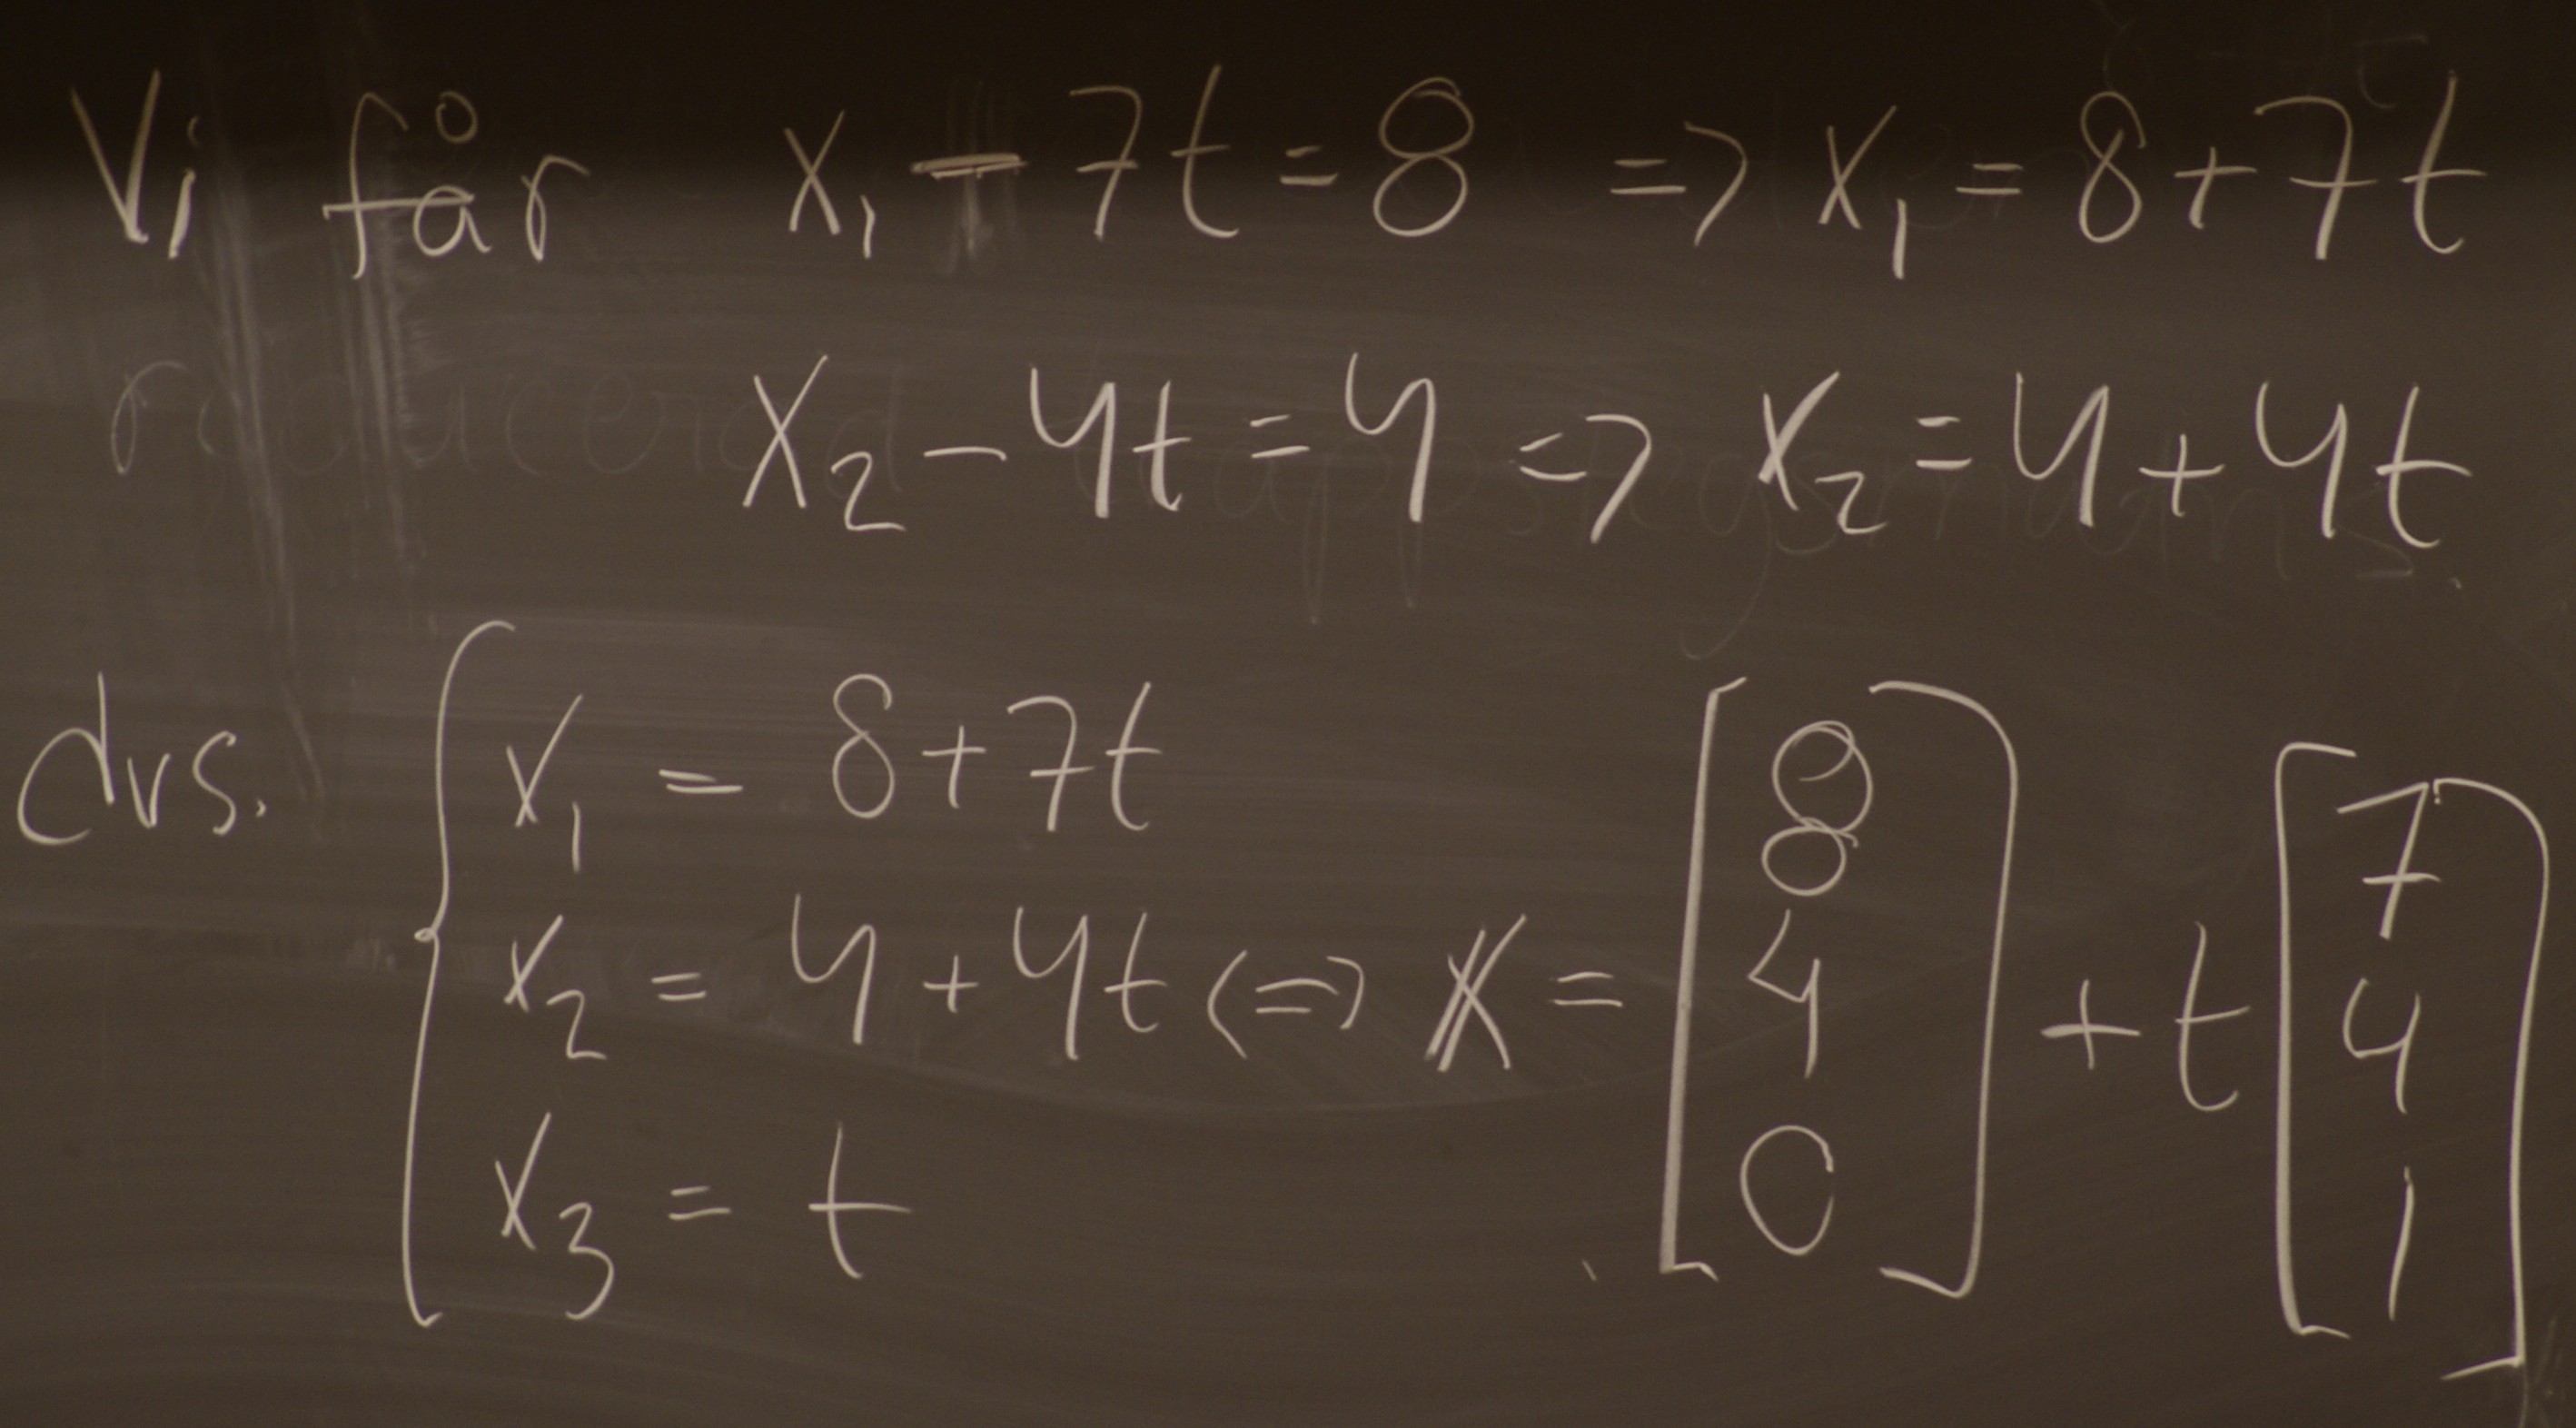 Vi får x₁ - 7t = 8 => x₁ = 8 + 7t
x₂ - 4t = 4 => x₂ = 4 + 4t
dvs. { x₁ = 8 + 7t
x₂ = 4 + 4t <=> x = [8 4 0] + t [7 4 1]
x₃ = t